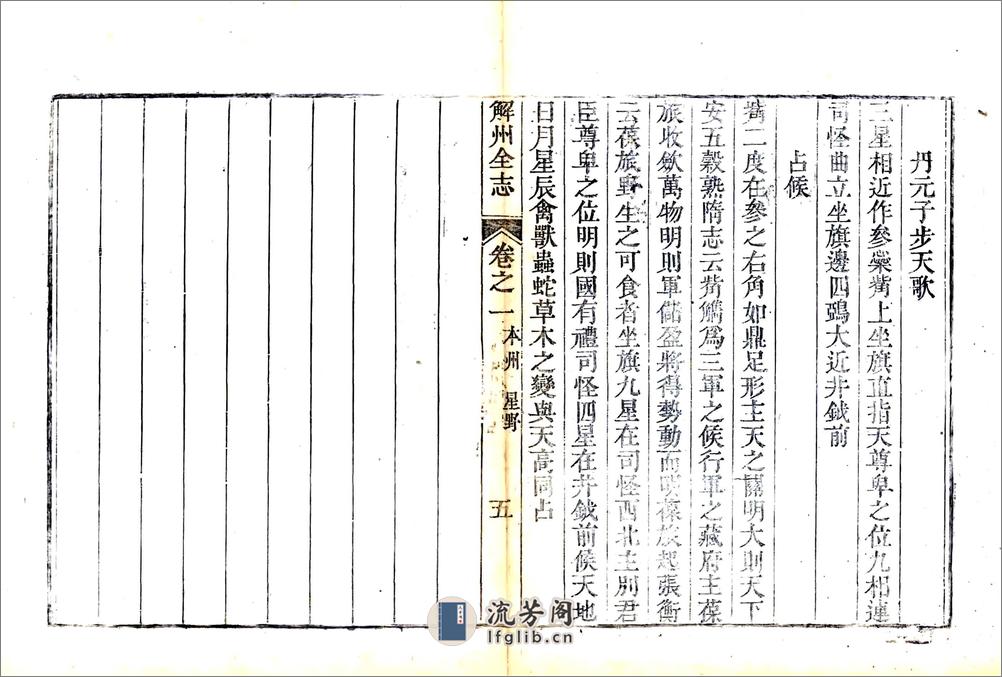 丹元子步天歌
三星相近作參蘂觜上坐旗直指天尊卑之位九相連
司怪曲立坐旗邊四鴉大近井鉞前
占候
觜二度在參之右角如鼎足形主天之關明大則天下
安五穀熟隋志云觜觿爲三軍之候行軍之藏府主葆
旅收斂萬物明則軍儲盈將得勢動而明葆旅起張衡
云葆旅野生之可食者坐旗九星在司怪西北主別君
臣尊卑之位明則國有禮司怪四星在井鉞前候天地
日月星辰禽獸蟲蛇草木之變與天高同占
解州全志
卷之一
本州 星野
五
流芳阁
lfglib.cn